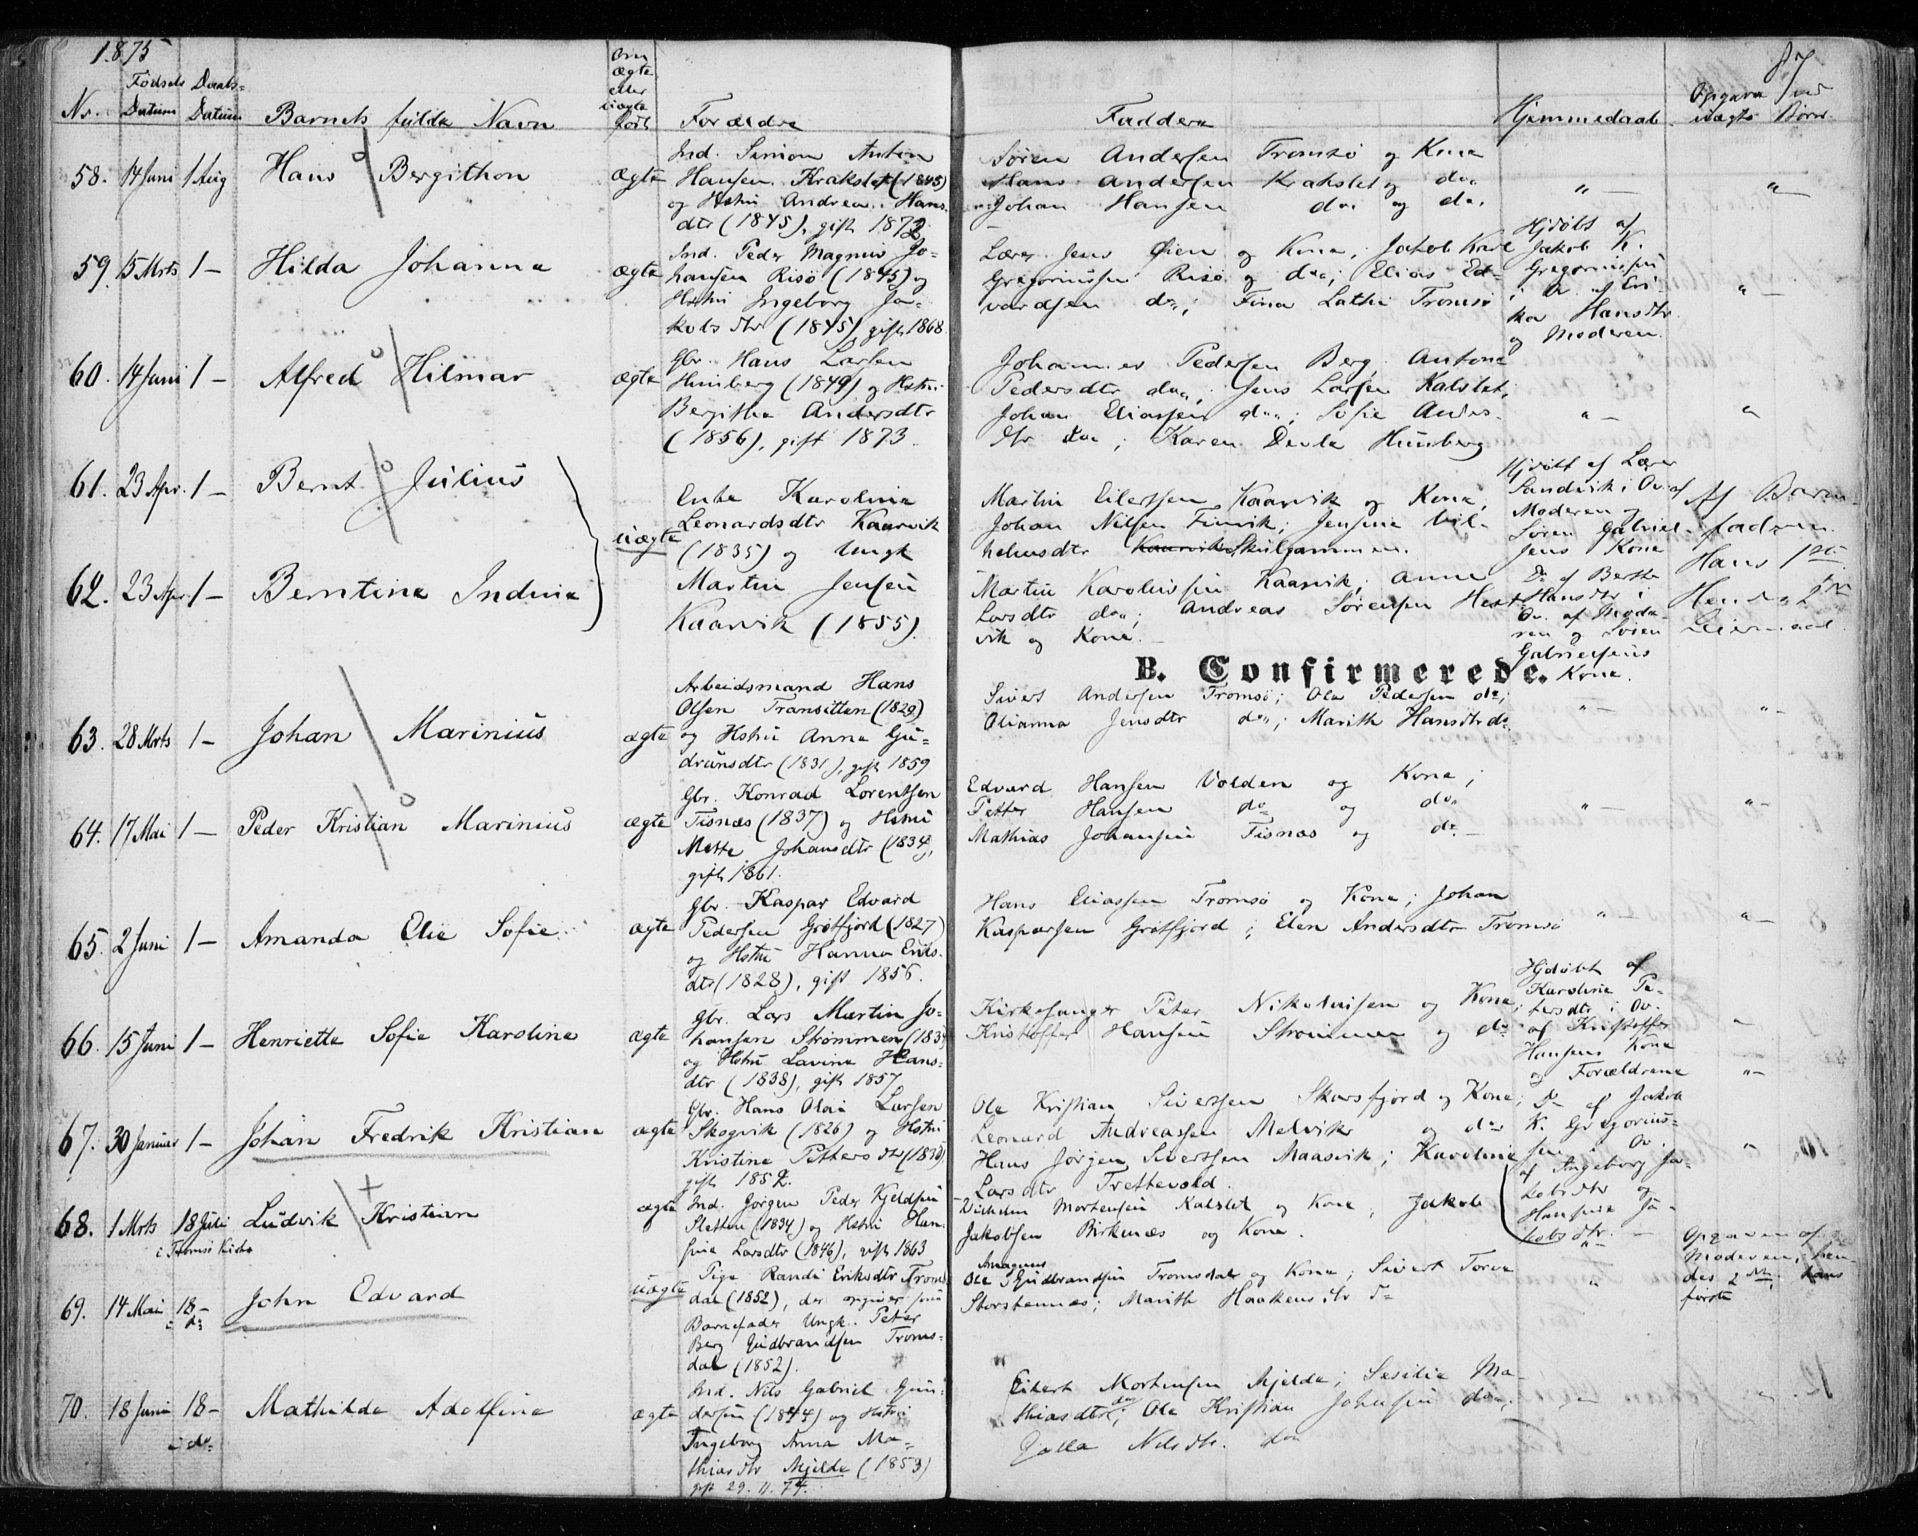 1875
87
No. Fødsels Datum Daabs- Datum Barnets fulde Navn Om ægte eller uægte født Forældre Faddere Hjemmedaab Opgave ved uægte Børn
58. 14 Juni 1 Aug Hans Bergithon ægte
Ind. Simon Anton
Hansen Krakslet (1845)
og Hstru Andrea Hans-
dtr (1845), gift 1872
Søren Andersen Tromsø og Kone
Hans Andersen Krakslet og do.
Johan Hansen do. og do.
59. 15 Mrts 1 - Hilda Johanna ægte
Ind. Peder Magnus Jo-
hansen Risø (1845) og
Hstru Ingeborg Ja-
kobsdtr (1845) gift 1868
Lærer Jens Øien og Kone, Jakob Karl
Gregoriussen Risø og do; Elias Ed-
vardsen do; Fina Lathi Tromsø
Hjdøbt af
Jakob K.
Gregoriussen
ka Hansdtr
og Moderen.
60. 14 Juni 1 - Alfred Hilmar ægte
Gbr. Hans Larsen
Hunberg (1849) og Hstru
Bergithe Andersdtr
(1856), gift 1873.
Johannes Pedersen Berg, Antone
Pedersdtr do; Jens Larsen Kalslet,
Johan Eliassen do; Sofie Anders-
dtr do; Karen Hunberg
61. 23 Apr. 1 - Bernt Julius
62. 23 Apr 1 - Berntine Indine uægte
Enke Karoline
Leonardsdtr Kaarvik
(1835) og Ungk
Martin Jensen
Kaarvik (1855).
Martin Eilertsen Kaarvik og Kone,
Johan Nilsen Finvik; Jensine Vil-
helmsdtr Kaarvik Skulgammen.
Martin Karoliussen Kaarvik; Anne
Larsdtr do; Andreas Sørensen Hest-
vik og Kone.
Hjdøbt af Lærer
Sandvik i Ov. af
Moderen og
Søren Gabriel-
sens Kone
Do af Berthe
Hansdtr i
Ov. af Mode-
ren og Søren
Gabrielsens
Kone.
Af Barne-
faderen.
Hans 1ste
Hendes 2det
Leiermaal.
B. Confirmerede.
63. 28 Mrts 1 - Johan Marinius ægte
Arbeidsmand Hans
Olsen Transetten (1829)
og Hstru Anna Gu-
drunsdtr (1831), gift 1859
Sivert Andersen Tromsø; Ole Pedersen do;
Olianna Jensdtr do; Marith Hansdtr do
64. 17 Mai 1 - Peder Kristian Marinius ægte
Gbr. Konrad Lorentsen
Tisnæs (1837) og Hstru
Mette Johansdtr (1834),
gift 1861.
Edvard Hansen Volden og Kone;
Petter Hansen do og do
Mathias Johansen Tisnæs og do.
65. 2 Juni 1 - Amanda Elie Sofie ægte
Gbr. Kaspar Edvard
Pedersen Grøtfjord (1827)
og Hstru Hanna Eriks-
dtr (1828), gift 1856.
Hans Eliassen Tromsø og Kone; Johan
Kaspersen Grøtfjord; Elen Andersdtr Tromsø
66. 15 Juni 1 - Henriette Sofie Karoline ægte
Gbr. Lars Martin Jo-
hansen Strømmen (1834)
og Hstru Lavina Hans-
dtr (1838), gift 1857
Kirkesanger Peter Nikolaisen og Kone;
Kristoffer Hansen Strømmen og do
Hjdøbt af
Karoline Pe-
tersdtr i Ov.
af Kristoffer
Hansens Kone
og Forældrene
67. 30 Januar 1 - Johan Fredrik Kristian ægte
Gbr. Hans Olai Larsen
Skogvik (1826) og Hstru
Kristine Pettersdtr (1830)
gift 1852.
Ole Kristian Sivertsen Skarsfjord og Kone;
Leonard Andreassen Melvik og do
Hans Jørgen Sivertsen Maasvik; Karoline
Larsdtr Trettevold.
Do af Jakob
K. Gregorius-
sen i Ov.
af Ingeborg Ja-
kobsdtr og
Hansine Ja-
kobsdtr.
68. 1 Mrts 18 Juli Ludvik Kristian ægte
i Tromsø Kirke
Ind. Jørgen Peder Kjeldsen
Sletten (1834) og Hstru Han-
sine Larsdtr (1846), gift 1863
Wilhelm Mortensen Kalslet og Kone, Jakob
Jakobsen Birknæs og Kone.
69. 14 Mai 18 - John Edvard uægte
i do
Pige Randi Eriksdtr Troms-
dal (1852), der opgiver som
Barnefader Ungk. Peter
Berg Gudbrandsen Troms-
dal (1852).
Amagnus
Ole Gudbrandsen Tromsdal og Kone; Sivert Torve
Storstennes; Marith Haakensdtr do
Opgaven af
Moderen, hen-
des 2det, hans
første
70. 18 Juni 18 - Mathilde Adolfine ægte
i do
Ind. Nils Gabriel Gun-
dersen (1844) og Hstru
Ingeborg Anna Ma-
thiasdtr Mjelde (1853)
gift 29.11.74.
Eilert Mortensen Mjelde; Sesilie Ma-
thiasdtr do; Ole Kristian Johnsen do,
Nilsdtr. do